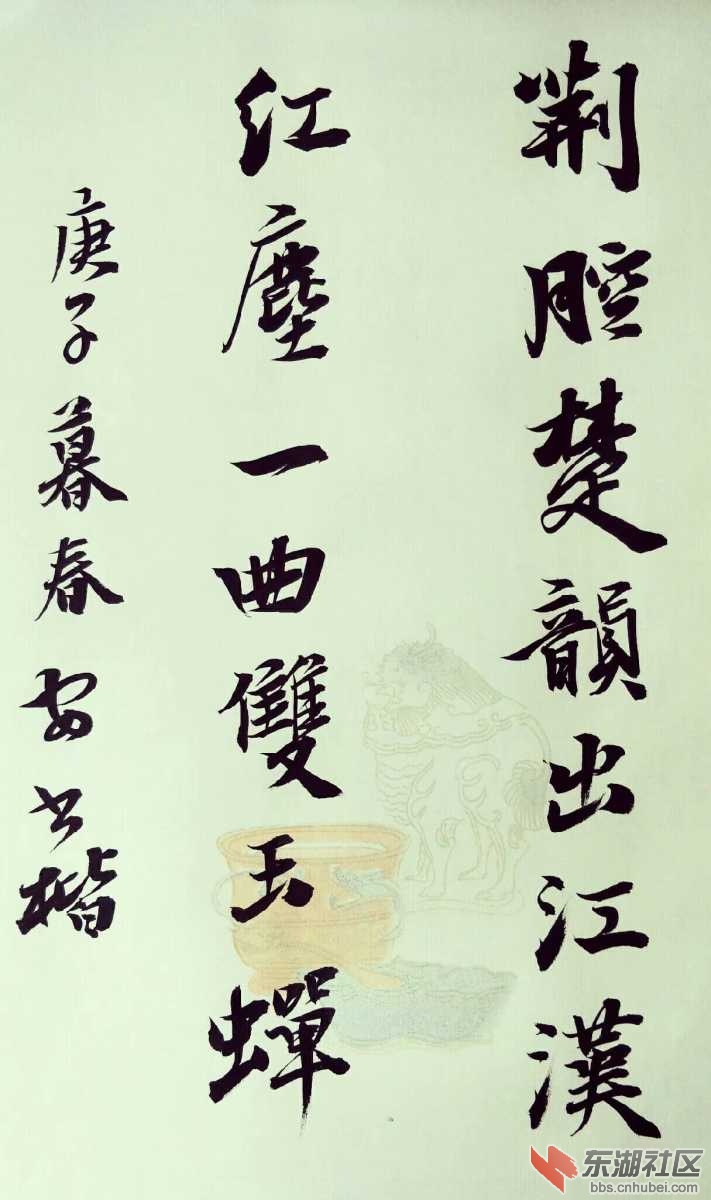 荆腔楚韻出江漢
红塵一曲雙玉蟬
庚子暮春安公楷
东湖社区
bbs.cnhubei.com